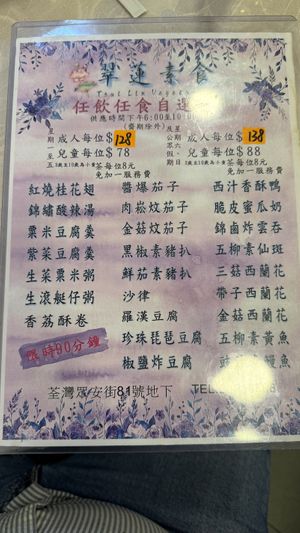 翠蓮素食
任飲任食自
供應時間下午6:00至10:
(齋期除外)
星期一至五
成人每位$128
兒童每位$78
茶每位8元
免加一服務費
星期六日及公眾假期
成人每位$138
兒童每位$88
茶每位8元
免加一服務費
紅燒桂花翅
錦繡酸辣湯
粟米豆腐羹
紫菜豆腐羹
生菜粟米粥
生滾艇仔粥
香荔酥卷
限時90分鐘
醬爆茄子
肉崧炆茄子
金菇炆茄子
黑椒素豬扒
鮮茄素豬扒
沙律
羅漢豆腐
珍珠琵琶豆腐
椒鹽炸豆腐
西汁香酥鴨
脆皮蜜瓜奶
錦鹵炸雲吞
五柳素仙斑
三菇西蘭花
帶子西蘭花
金菇西蘭花
五柳素黃魚
素鰻魚
荃灣眾安街81號地下
TEL: